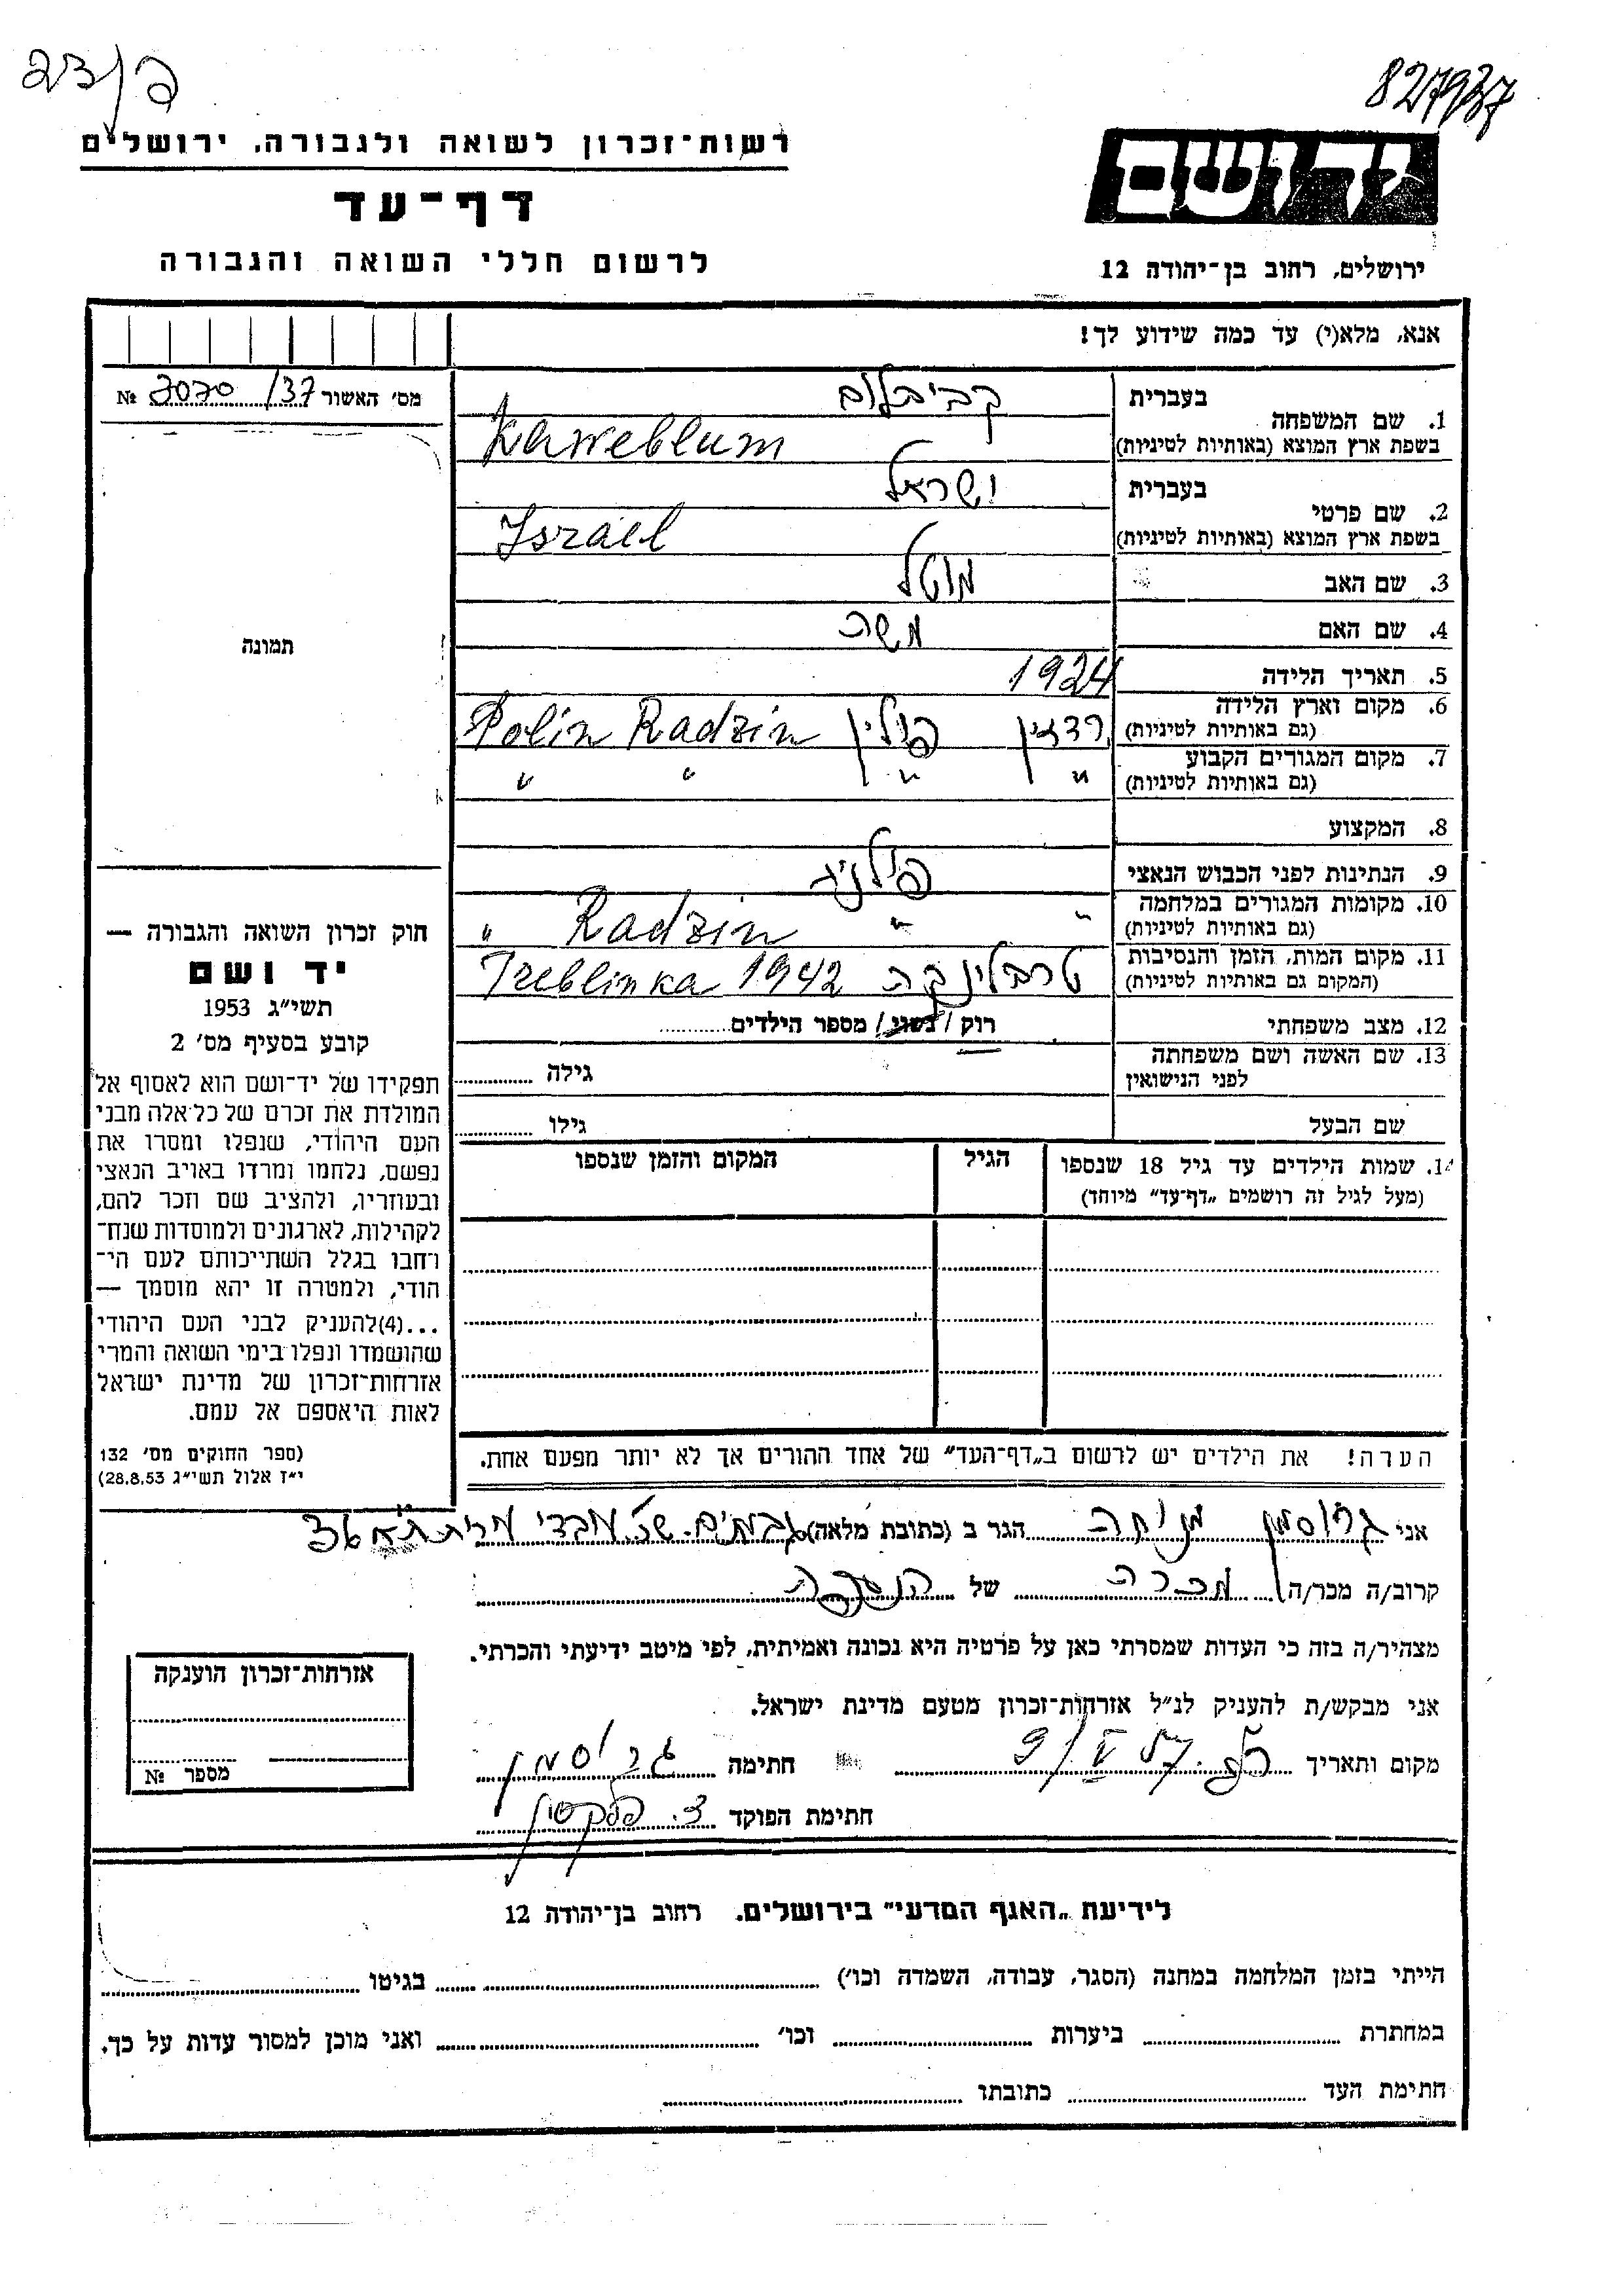 827937
רשות־זכרון לשואה ולגבורה, ירושלים
יד ושם
דף־עד
לרשום חללי השואה והגבורה
ירושלים, רחוב בן־יהודה 12
אנא, מלא(י) עד כמה שידוע לך!
מס׳ האשור 3070/37 №
1. שם המשפחה
בעברית
בשפת ארץ המוצא (באותיות לטיניות) Kaweblum
2. שם פרטי
בעברית ישראל
בשפת ארץ המוצא (באותיות לטיניות) Israel
3. שם האב מוטל
4. שם האם משה
5. תאריך הלידה 1924
6. מקום וארץ הלידה
(גם באותיות לטיניות) רדזין פולין Polin Radzin
7. מקום המגורים הקבוע
(גם באותיות לטיניות) " " " "
8. המקצוע
9. הנתינות לפני הכבוש הנאצי
10. מקומות המגורים במלחמה
(גם באותיות לטיניות) " " Radzin "
11. מקום המות, הזמן והנסיבות
(המקום גם באותיות לטיניות) טרבלינקה Treblinka 1942
12. מצב משפחתי רוק / נשוי / מספר הילדים
13. שם האשה ושם משפחתה
לפני הנישואין גילה
שם הבעל גילו
14. שמות הילדים עד גיל 18 שנספו
(מעל לגיל זה רושמים „דף־עד״ מיוחד)
הגיל
המקום והזמן שנספו
הערה! את הילדים יש לרשום ב„דף־העד״ של אחד ההורים אך לא יותר מפעם אחת.
תמונה
חוק זכרון השואה והגבורה —
יד ושם
תשי״ג 1953
קובע בסעיף מס׳ 2
תפקידו של יד־ושם הוא לאסוף אל
המולדת את זכרם של כל־אלה מבני
העם היהודי, שנפלו ומסרו את
נפשם, נלחמו ומרדו באויב הנאצי
ובעוזריו, ולהציב שם וזכר להם,
לקהילות, לארגונים ולמוסדות שנח־
רחבו בגלל השתייכותם לעם הי־
הודי, ולמטרה זו יהא מוסמך —
...(4)להעניק לבני העם היהודי
שהושמדו ונפלו בימי השואה והמרי
אזרחות־זכרון של מדינת ישראל
לאות היאספם אל עמם.
(ספר החוקים מס׳ 132
י״ז אלול תשי״ג 28.8.53)
אני גרוסמן מנוחה הגר ב (כתובת מלאה) גבעתיים
קרוב/ה מכר/ה מכרה של הנספה
מצהיר/ה בזה כי העדות שמסרתי כאן על פרטיה היא נכונה ואמיתית, לפי מיטב ידיעתי והכרתי.
אני מבקש/ת להעניק לנ״ל אזרחות־זכרון מטעם מדינת ישראל.
מקום ותאריך 9/V 57 חתימה גרוסמן
חתימת הפוקד
אזרחות־זכרון הוענקה
מספר №
לידיעת „האגף המדעי״ בירושלים, רחוב בן־יהודה 12
הייתי בזמן המלחמה במחנה (הסגר, עבודה, השמדה וכו׳) בגיטו
במחתרת ביערות וכו׳ ואני מוכן למסור עדות על כך.
חתימת העד כתובתו